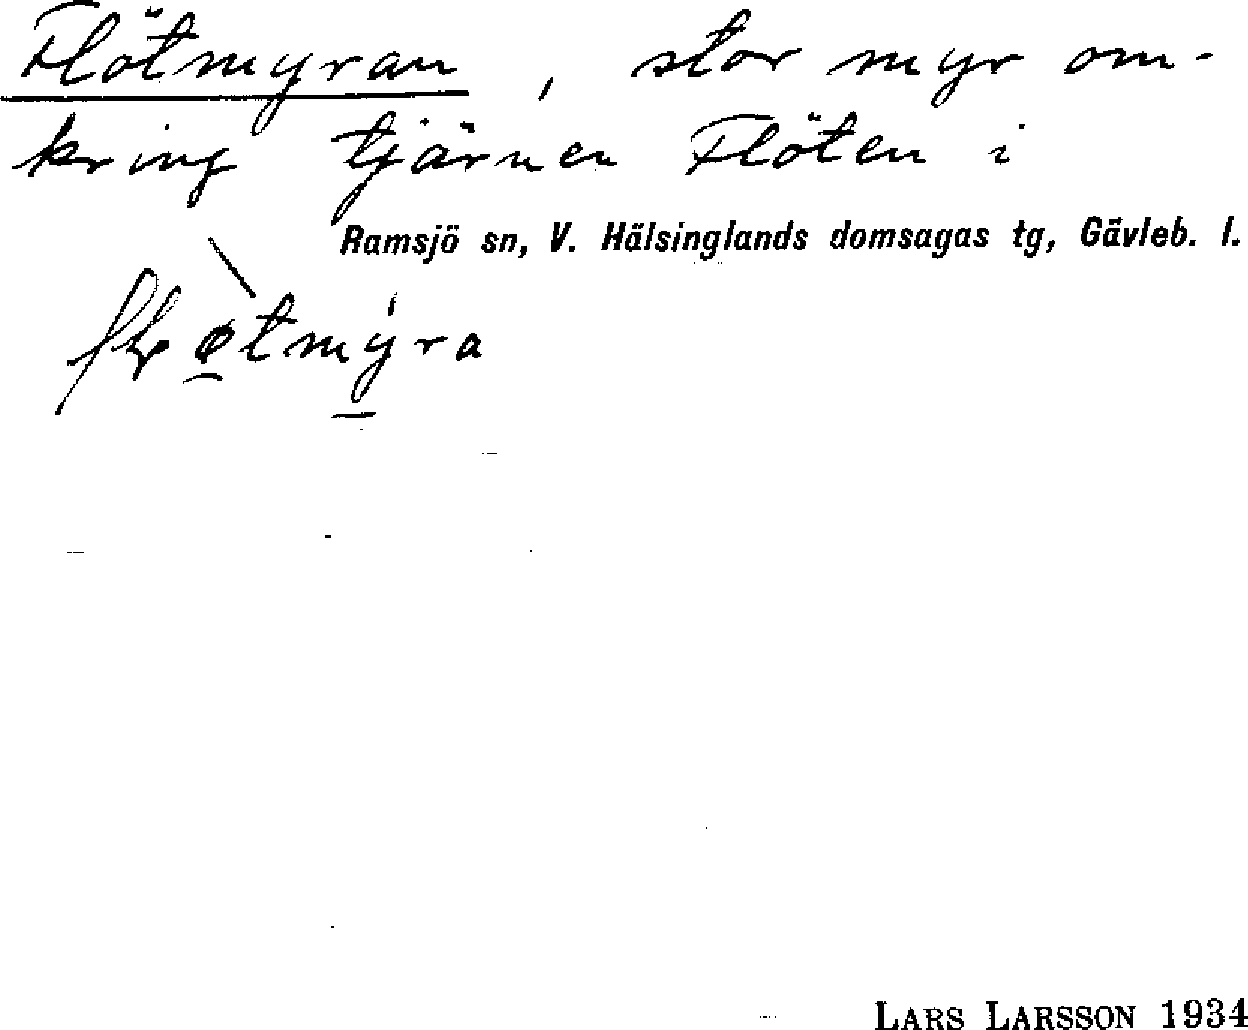 Flötmyran, stor myr om-
kring tjärnen Flöten i
Ramsjö sn, V. Hälsinglands domsagas tg, Gävleb. l.
LARS LARSSON 1934